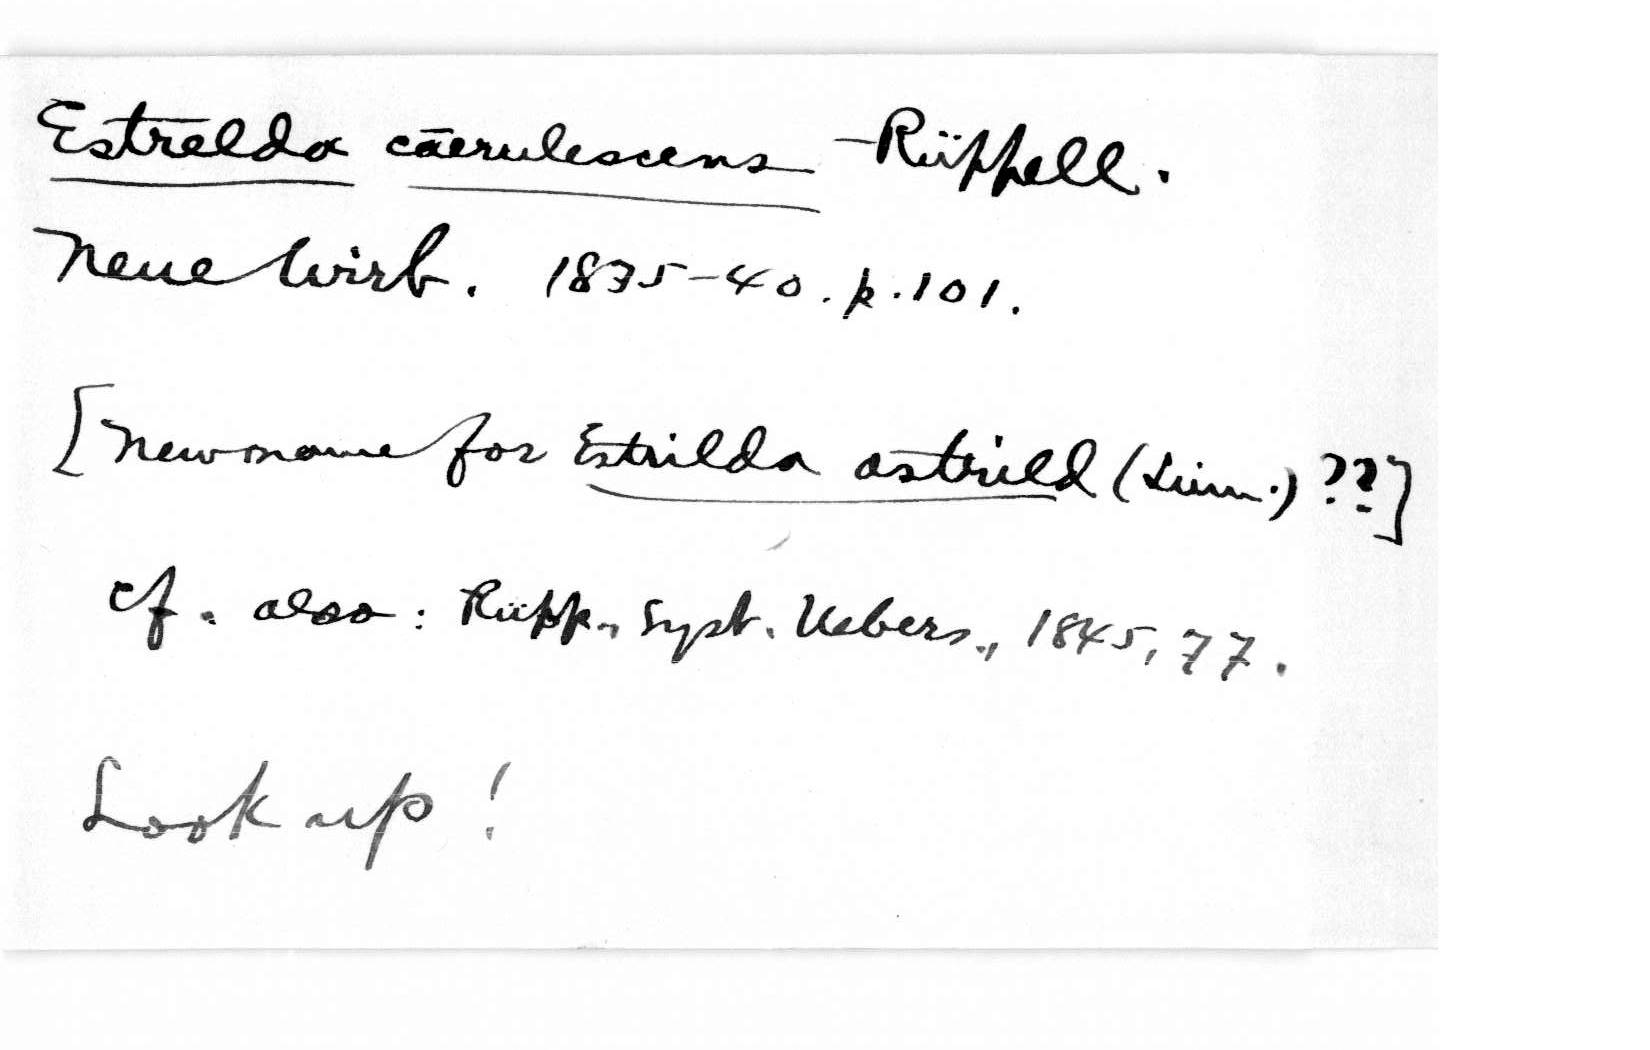 Estrelda caerulescens - Rüppell.
Neue Wirb. 1835-40. p. 101.
[New name for Estrilda astrild (Linn.) ??]
cf. also: Rüpp., Syst. Uebers., 1845, 77.
Look up!